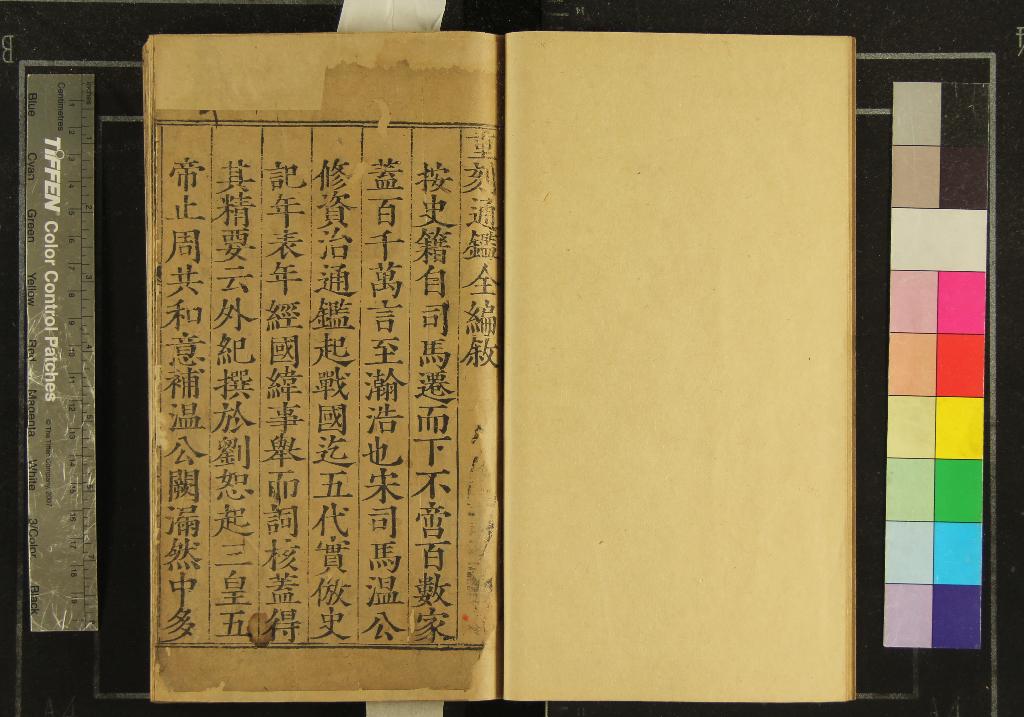 重刻通鑑全編敘
按史籍自司馬遷而下不啻百數家
蓋百千萬言至瀚浩也宋司馬温公
修資治通鑑起戰國迄五代實倣史
記年表年經國緯事舉而詞核蓋得
其精要云外紀撰於劉恕起三皇五
帝止周共和意補温公闕漏然中多
Inches
Centimetres
TIFFEN Color Control Patches
© The Tiffen Company, 2007
Blue Cyan Green Yellow Red Magenta White 3/Color Black
B